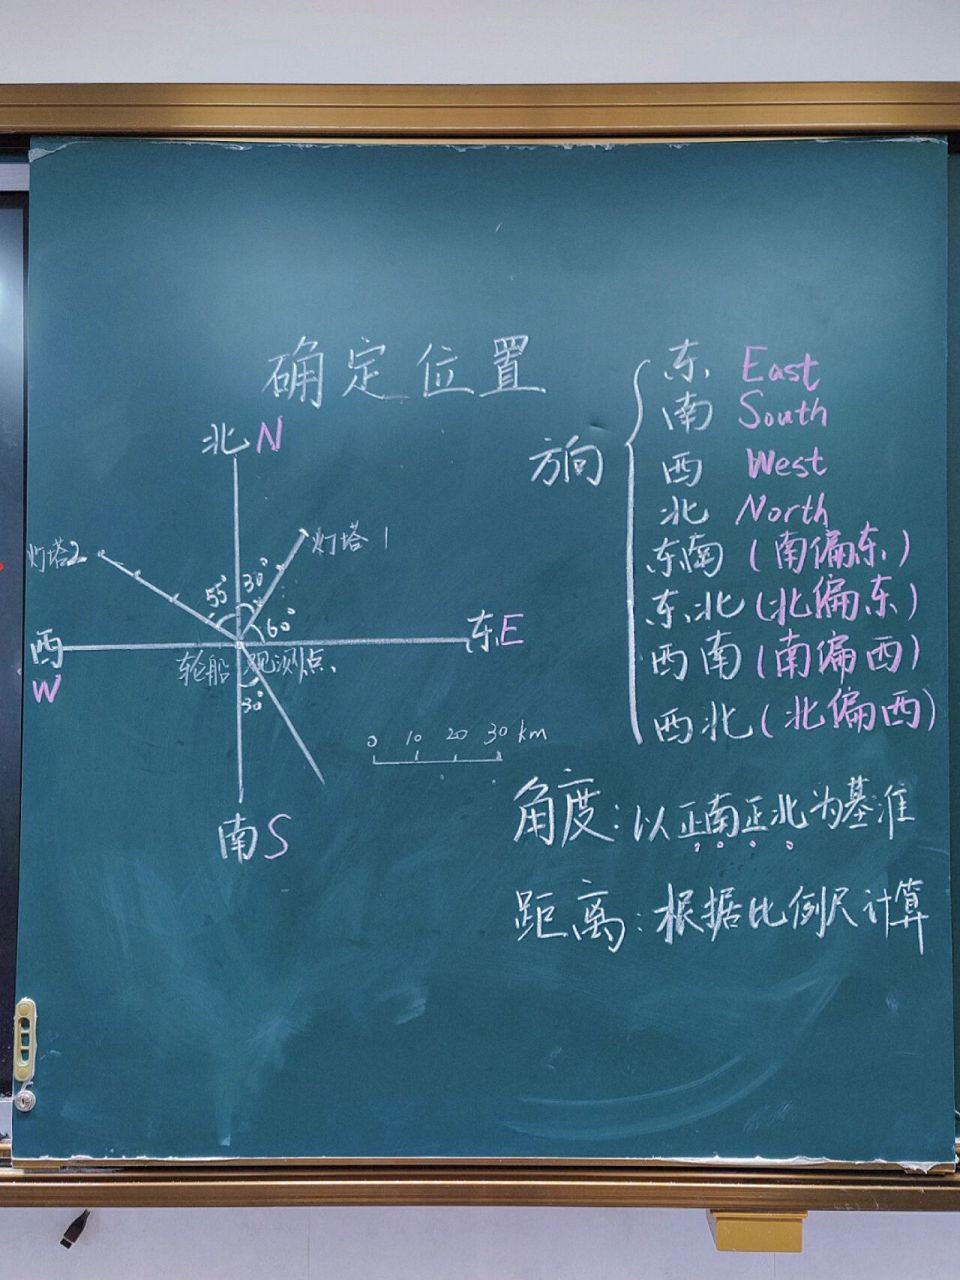 确定位置
北 N
灯塔2
灯塔1
55°
30°
60°
西
W
东 E
轮船
观测点
30°
南 S
0 10 20 30 km
方向
东 East
南 South
西 West
北 North
东南 (南偏东)
东北 (北偏东)
西南 (南偏西)
西北 (北偏西)
角度：以正南正北为基准
距离：根据比例尺计算